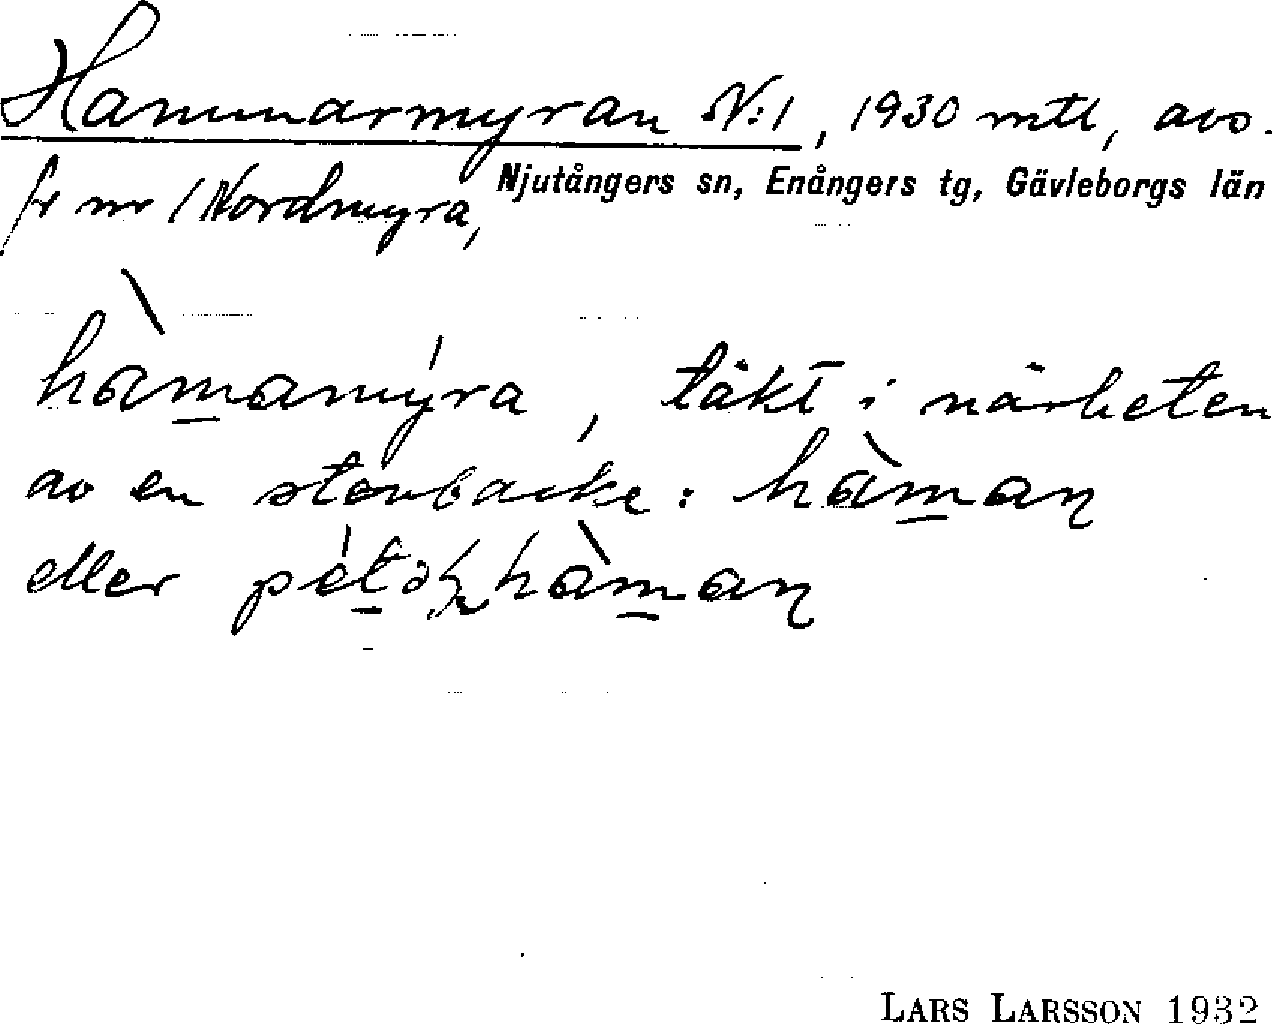 Hammarmyran N:1, 1930 mtl, avs.
fr nr 1 Nordmyra,
Njutångers sn, Enångers tg, Gävleborgs län
hàmamýra, täkt i närheten
av en stenbacke: hàman
eller hàman
LARS LARSSON 1932